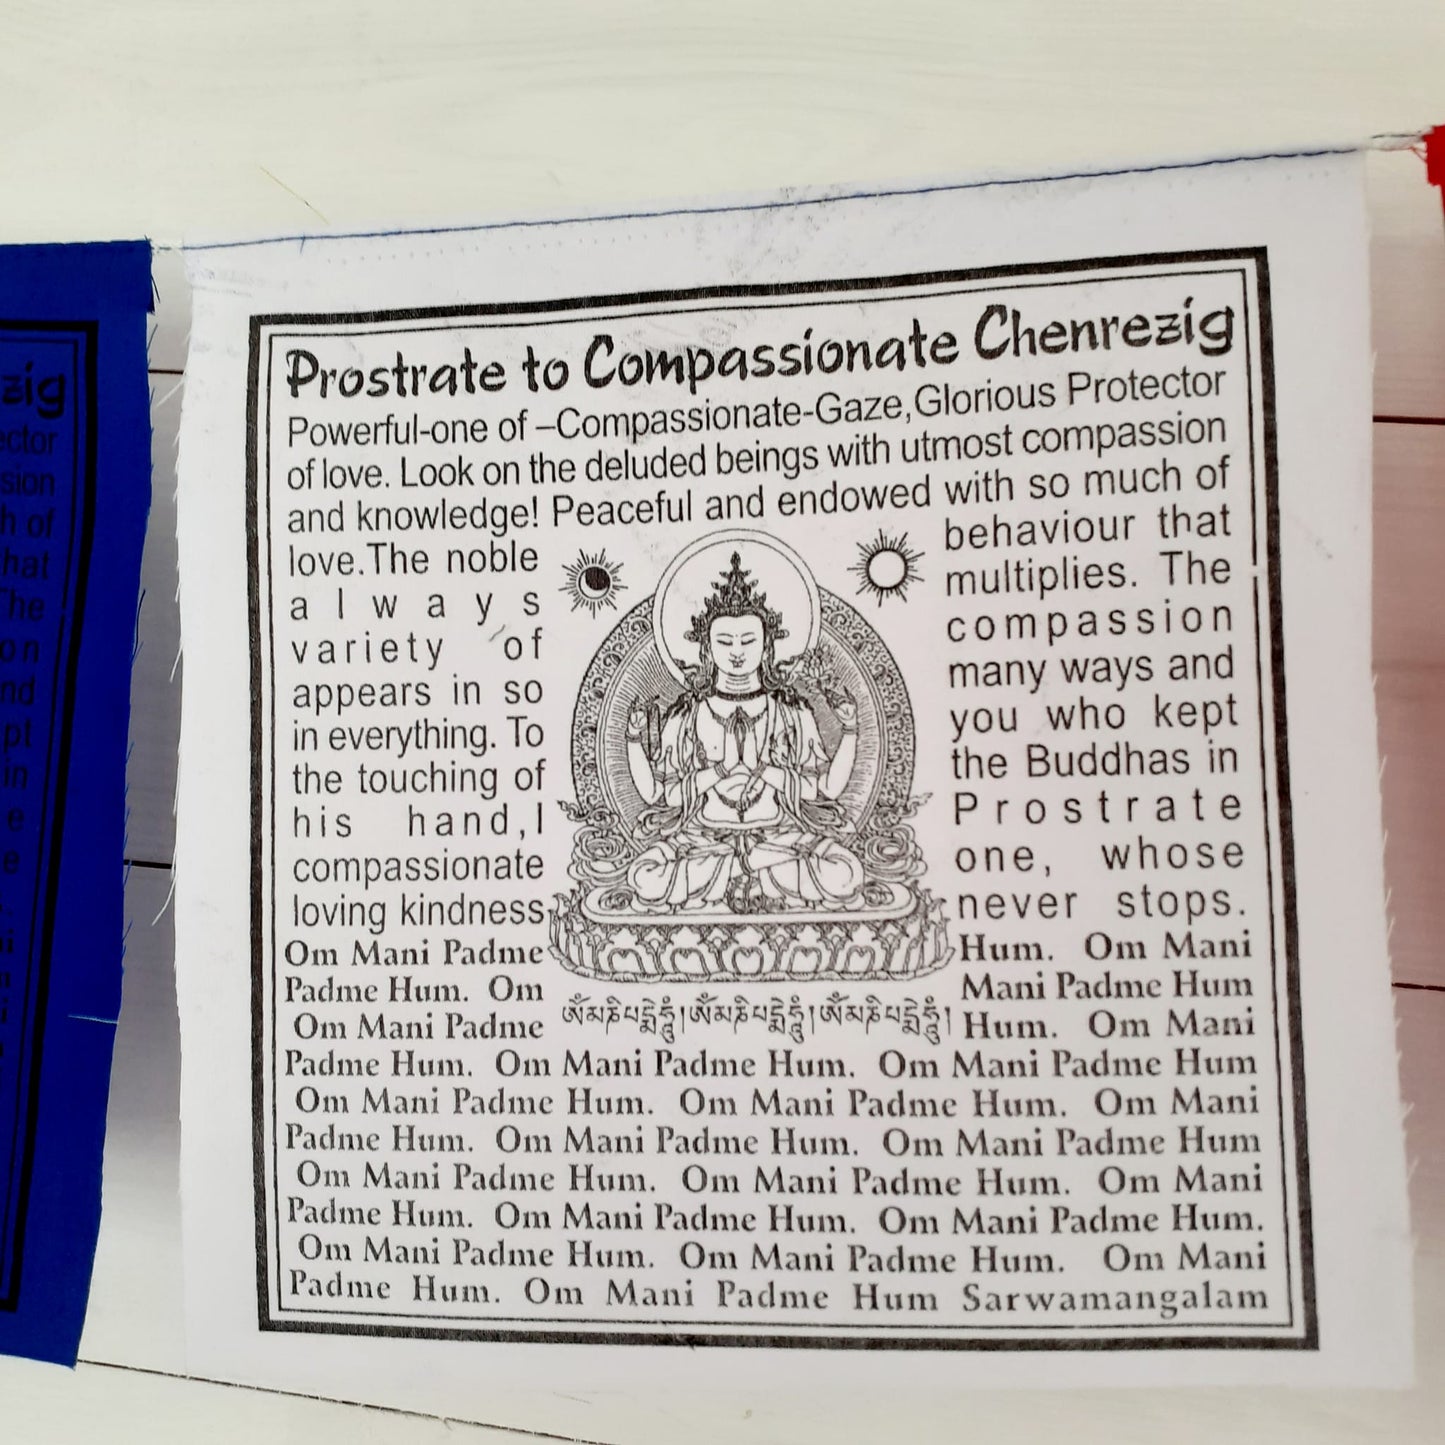 zig
ector
sion
h of
hat
The
on
nd
pt
in
e
e
Prostrate to Compassionate Chenrezig
Powerful-one of –Compassionate-Gaze,Glorious Protector
of love. Look on the deluded beings with utmost compassion
and knowledge! Peaceful and endowed with so much of
love.The noble behaviour that
always multiplies. The
variety of compassion
appears in so many ways and
in everything. To you who kept
the touching of the Buddhas in
his hand,I Prostrate
compassionate one, whose
loving kindness never stops.
Om Mani Padme Hum. Om Mani
Padme Hum. Om Mani Padme Hum
Om Mani Padme ཨོཾ་མ་ཎི་པདྨེ་ཧཱུྃ།ཨོཾ་མ་ཎི་པདྨེ་ཧཱུྃ།ཨོཾ་མ་ཎི་པདྨེ་ཧཱུྃ། Hum. Om Mani
Padme Hum. Om Mani Padme Hum. Om Mani Padme Hum
Om Mani Padme Hum. Om Mani Padme Hum. Om Mani
Padme Hum. Om Mani Padme Hum. Om Mani Padme Hum
Om Mani Padme Hum. Om Mani Padme Hum. Om Mani
Padme Hum. Om Mani Padme Hum. Om Mani Padme Hum.
Om Mani Padme Hum. Om Mani Padme Hum. Om Mani
Padme Hum. Om Mani Padme Hum Sarwamangalam